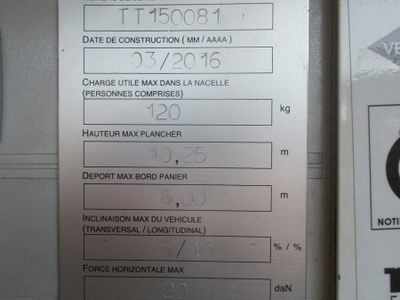 TT150081
DATE DE CONSTRUCTION ( MM / AAAA )
03/2016
CHARGE UTILE MAX DANS LA NACELLE
(PERSONNES COMPRISES)
120 kg
HAUTEUR MAX PLANCHER
10,25 m
DEPORT MAX BORD PANIER
6,00 m
INCLINAISON MAX DU VEHICULE
(TRANSVERSAL / LONGITUDINAL)
% / %
FORCE HORIZONTALE MAX
20 daN